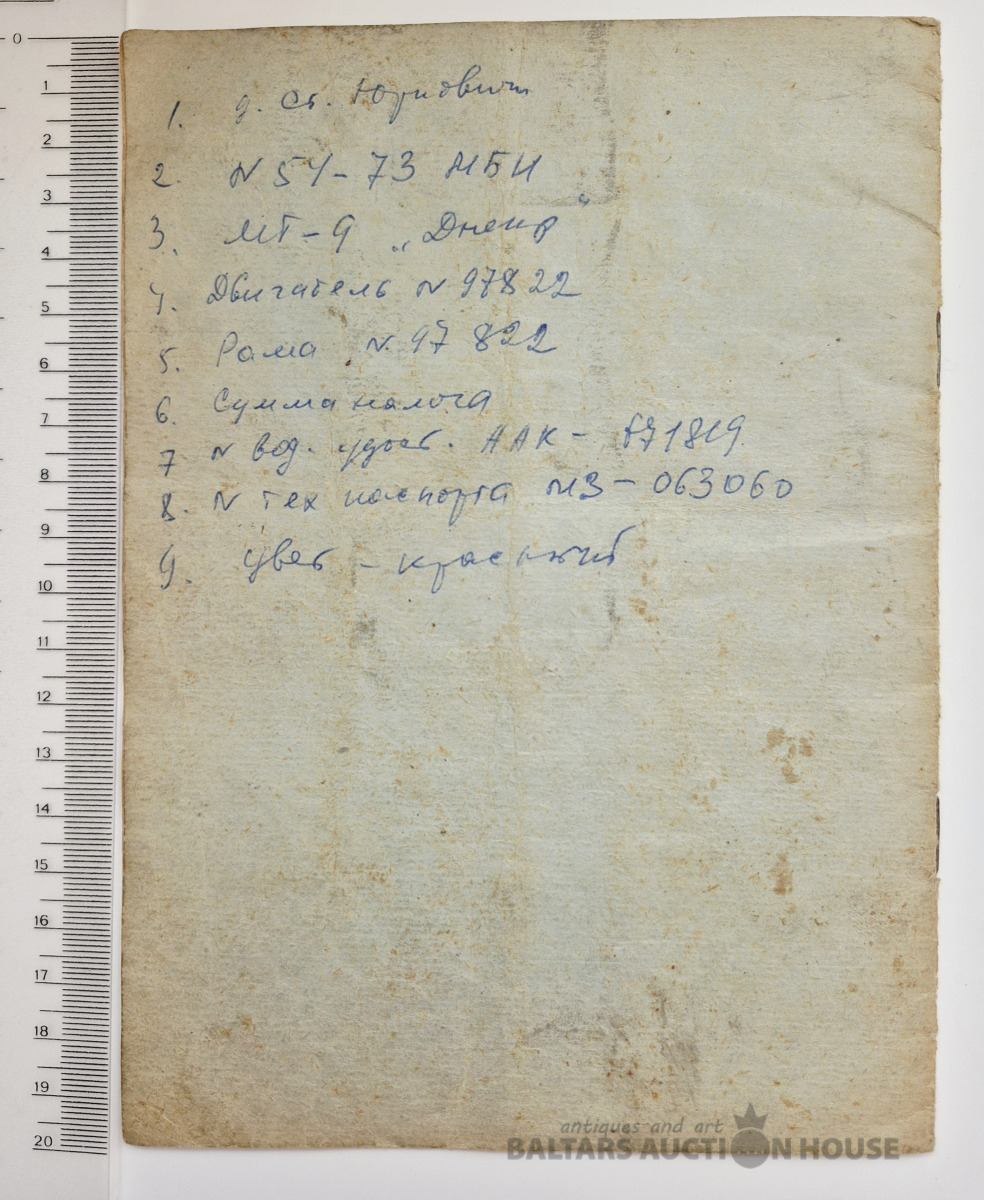 0
1
2
3
4
5
6
7
8
9
10
11
12
13
14
15
16
17
18
19
20
1. д. Ст. Юрковичи
2. N 54-73 МБИ
3. МТ-9 „Днепр"
4. Двигатель N 97822
5. Рама N 97 822
6. Сумма налога
7 N вод. удост. ААК - 871819
8. N тех паспорта МЗ - 063060
9. Цвет - красный
antiques and art
BALTARS AUCTION HOUSE